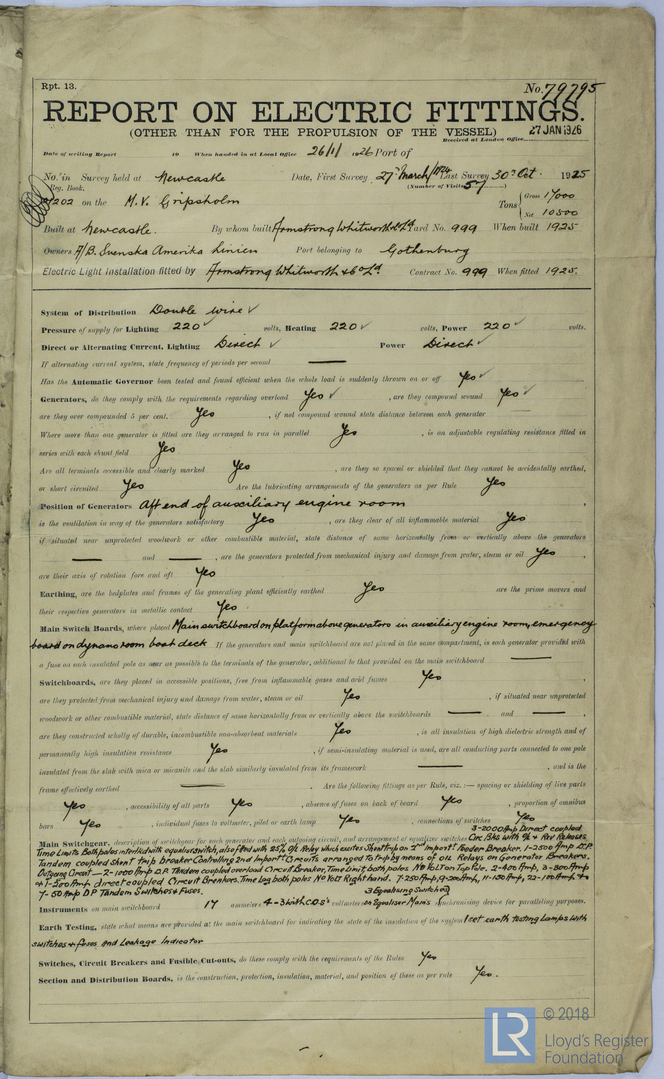 Rpt. 13.
No. 79795
REPORT ON ELECTRIC FITTINGS.
(OTHER THAN FOR THE PROPULSION OF THE VESSEL)
Received at London Office 27 JAN 1926
Date of writing Report 19 When handed in at Local Office 26/1/ 1926 Port of
No. in Survey held at Newcastle Date, First Survey 27th March/1924 Last Survey 30th Oct. 1925
Reg. Book. (Number of Visits 57)
202 on the M.V. Gripsholm Tons { Gross 17000
Net 10500
Built at Newcastle. By whom built Armstrong Whitworth & Co Ld Yard No. 999 When built 1925
Owners A/B. Svenska Amerika Linien Port belonging to Gothenburg
Electric Light Installation fitted by Armstrong Whitworth & Co Ld Contract No. 999 When fitted 1925.
System of Distribution Double wire ✓
Pressure of supply for Lighting 220 ✓ volts, Heating 220 ✓ volts, Power 220 ✓ volts.
Direct or Alternating Current, Lighting Direct ✓ Power Direct ✓
If alternating current system, state frequency of periods per second —
Has the Automatic Governor been tested and found efficient when the whole load is suddenly thrown on or off Yes ✓
Generators, do they comply with the requirements regarding overload Yes ✓ , are they compound wound Yes ✓
are they over compounded 5 per cent. Yes , if not compound wound state distance between each generator —
Where more than one generator is fitted are they arranged to run in parallel Yes , is an adjustable regulating resistance fitted in
series with each shunt field Yes
Are all terminals accessible and clearly marked Yes , are they so spaced or shielded that they cannot be accidentally earthed,
or short circuited Yes Are the lubricating arrangements of the generators as per Rule Yes
Position of Generators Aft end of auxiliary engine room ,
is the ventilation in way of the generators satisfactory Yes , are they clear of all inflammable material Yes ,
if situated near unprotected woodwork or other combustible material, state distance of same horizontally from or vertically above the generators
— and — , are the generators protected from mechanical injury and damage from water, steam or oil Yes ,
are their axis of rotation fore and aft Yes
Earthing, are the bedplates and frames of the generating plant efficiently earthed Yes are the prime movers and
their respective generators in metallic contact Yes .
Main Switch Boards, where placed Main switchboard on platform above generators in auxiliary engine room, emergency
board on dynamo room boat deck If the generators and main switchboard are not placed in the same compartment, is each generator provided with
a fuse on each insulated pole as near as possible to the terminals of the generator, additional to that provided on the main switchboard —
Switchboards, are they placed in accessible positions, free from inflammable gases and acid fumes Yes ,
are they protected from mechanical injury and damage from water, steam or oil Yes , if situated near unprotected
woodwork or other combustible material, state distance of same horizontally from or vertically above the switchboards — and — ,
are they constructed wholly of durable, incombustible non-absorbent materials Yes , is all insulation of high dielectric strength and of
permanently high insulation resistance Yes , if semi-insulating material is used, are all conducting parts connected to one pole
insulated from the slab with mica or micanite and the slab similarly insulated from its framework — , and is the
frame effectively earthed — . Are the following fittings as per Rule, viz.:— spacing or shielding of live parts
Yes , accessibility of all parts Yes , absence of fuses on back of board Yes , proportion of omnibus
bars Yes , individual fuses to voltmeter, pilot or earth lamp Yes , connections of switches Yes
Main Switchgear, description of switchgear for each generator and each outgoing circuit, and arrangement of equaliser switches 3-2000 Amp Direct coupled
Circ. Bks with O/L & Rev Releases,
Time Limits Both poles interlocked with equaliser switch, also fitted with 25% O/L Relay which excites Shunt trip on 2nd Import! Feeder Breaker. 1-2500 Amp D.P.
Tandem coupled Shent trip breaker Controlling 2nd Import! Circuits arranged to trip by means of O/L Relays on Generator Breakers.
Outgoing Circuit — 2-1000 Amp D.P. Tandem coupled overload Circuit Breaker, Time Limit both poles. No Volt on Top Pole. 2-400 Amp, 3-300 Amp
& 1-200 Amp direct coupled Circuit Breakers. Time Lag both poles No Volt Right hand. 7-250 Amp, 9-200 Amp, 11-150 Amp, 22-100 Amp &
7-50 Amp D.P Tandem Switches & Fuses. 3 Equalising Switches
Instruments on main switchboard 17 ammeters 4-3 with C.O.S's voltmeters on Equaliser Mains synchronising device for paralleling purposes.
Earth Testing, state what means are provided at the main switchboard for indicating the state of the insulation of the system 1 set earth testing Lamps with
switches & fuses And Leakage Indicator
Switches, Circuit Breakers and Fusible Cut-outs, do these comply with the requirements of the Rules Yes
Section and Distribution Boards, is the construction, protection, insulation, material, and position of these as per rule Yes.
LR © 2018
Lloyd's Register
Foundation